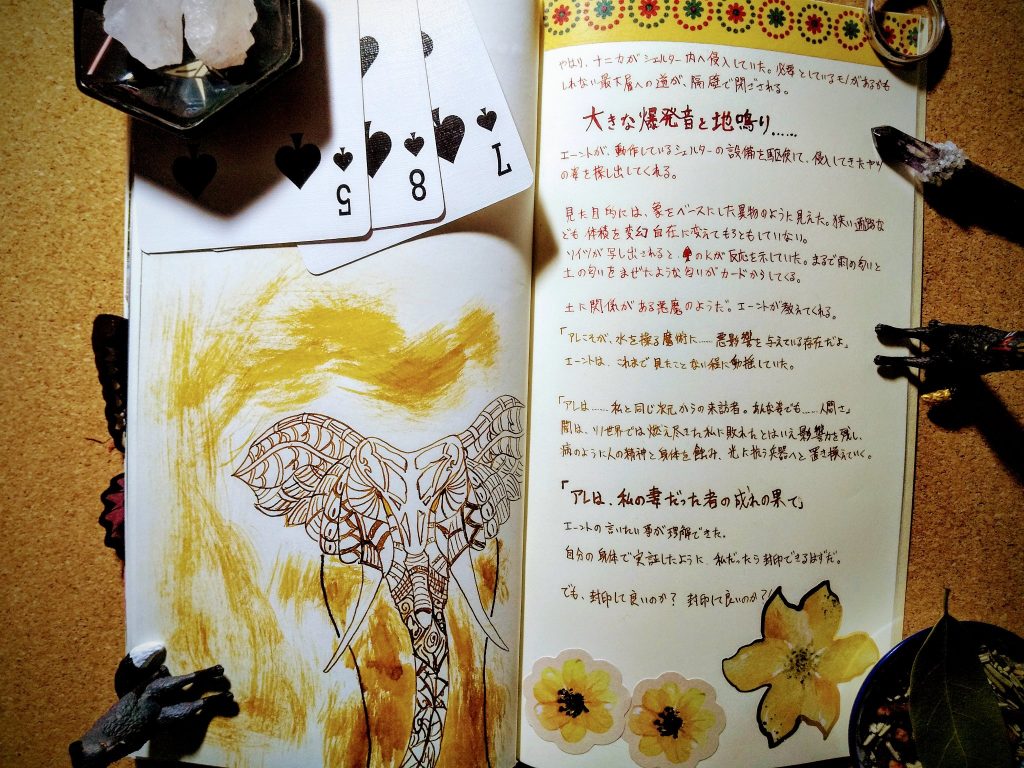 5
8
7
やはり、ナニカがシェルター内へ侵入していた。必要としているモノがあるかも
しれない最下層への道が、隔壁で閉ざされる。
大きな爆発音と地鳴り……
エーントが、動作しているシェルターの設備を駆使して、侵入してきたヤツ
の姿を探し出してくれる。
見た目的には、象をベースにした異物のように見えた。狭い通路な
ども体積を変幻自在に変えてものともしていない。
ソイツが写し出されると、♠のKが反応を示していた。まるで雨の匂いと
土の匂いをまぜたような匂いがカードからしてくる。
土に関係がある悪魔のようだ。エーントが教えてくれる。
「アレこそが、水を操る魔術に……悪影響を与えている存在だよ」
エーントは、これまで見たことない程に動揺していた。
「アレは……私と同じ次元からの来訪者。あんな姿でも……人間さ」
闇は、世界では燃え尽きた私に敗れたとはいえ影響力を残し、
病のように人の精神と身体を蝕み、光に抗う兵器へと置き換えていく。
「アレは、私の妻だった者の成れの果て」
エーントの言いたい事が理解できた。
自分の身体で実証したように、私だったら封印できるはずだ。
でも、封印して良いのか？封印して良いのか？